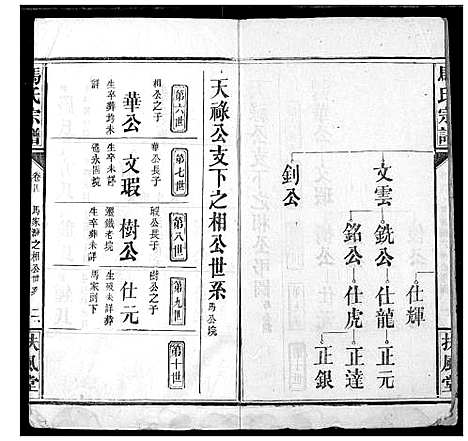 馬氏宗譜
扶風堂
文雲
釗公
銑公
銘公
仕輝
仕龍
仕虎
正元
正達
正銀
天祿公支下之相公世系
第六世
相公之子
華公
生卒葬均未
詳
第七世
華公長子
文瑕
生卒未詳
第八世
瑕公長子
樹公
生卒葬未詳
第九世
樹公之子
仕元
生歿未詳葬
馬家則下
第十世
馬氏宗譜
馬家
之相公世系
二
扶風堂